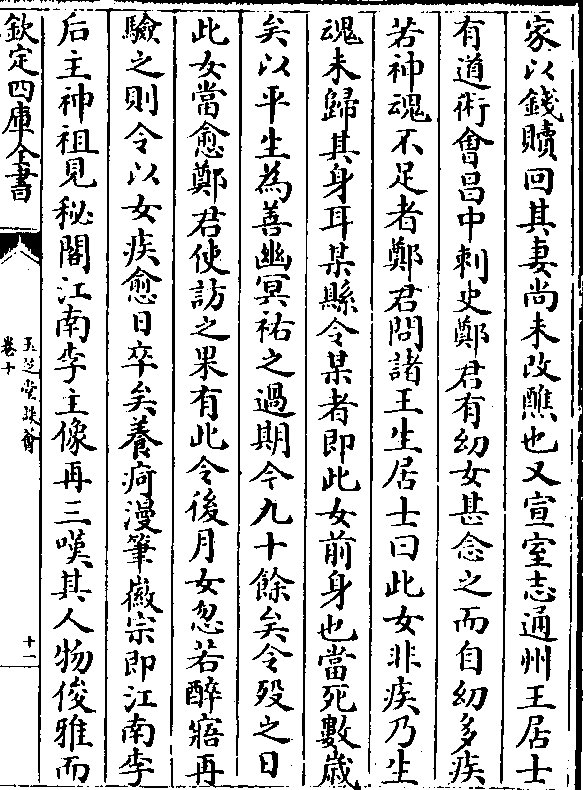 家以錢贖回其妻尚未改醮也又宣室志通州王居士
有道術會昌中刺史鄭君有幼女甚念之而自幼多疾
若神魂不足者鄭君問諸王生居士曰此女非疾乃生
魂未歸其身耳某縣令某者即此女前身也當死數歲
矣以平生為善幽冥祐之過期今九十餘矣令殁之日
此女當愈鄭君使訪之果有此令後月女忽若醉寤再
驗之則令以女疾愈日卒矣養疴漫筆徽宗即江南李
后主神祖見秘閣江南李主像再三嘆其人物俊雅而
欽定四庫全書
玉芝堂談薈
卷十
十一